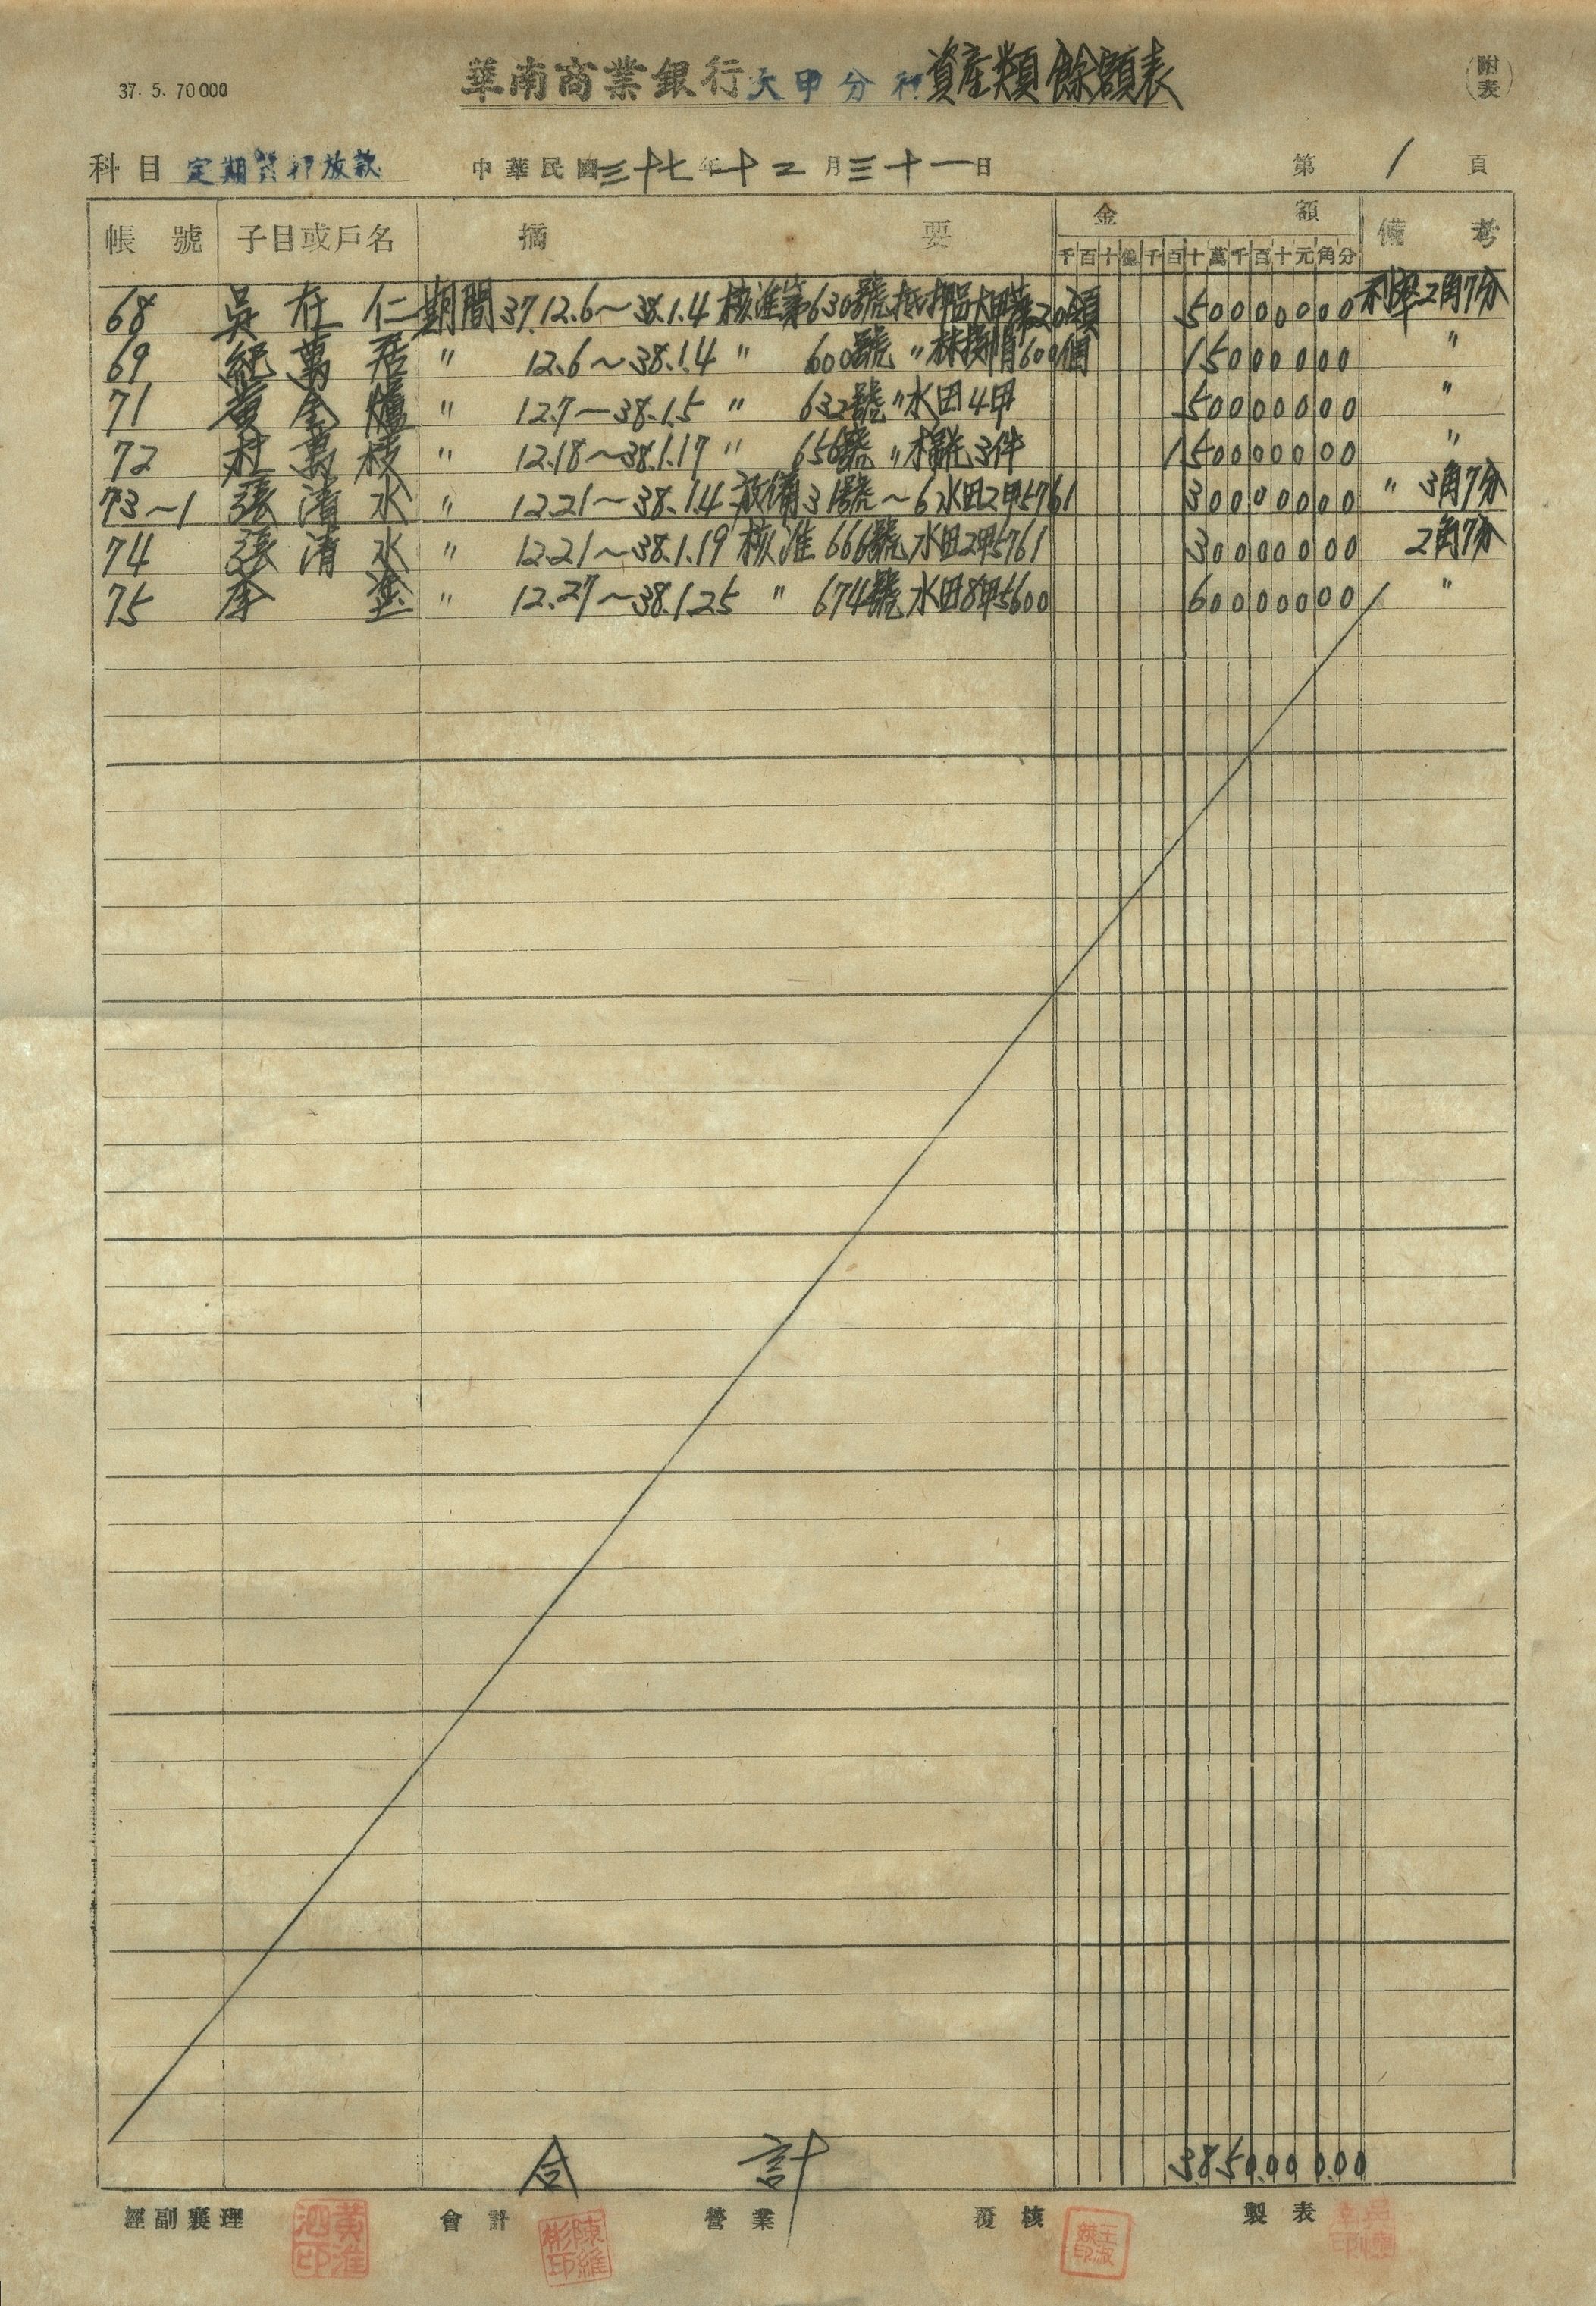 37. 5. 70000
華南商業銀行大甲分行資產類餘額表
附表
科目 定期質押放款 中華民國三十七年十二月三十一日 第1頁
帳號 子目或戶名 摘要 金額 備考
千百十億千百十萬千百十元角分
68 吳在仁 期間37.12.6~38.1.4 核准第630號抵押品大甲蓆20領 50000000 利率2角7分
69 紀萬居 〃 12.6~38.1.4 〃 600號 〃 林投帽600個 15000000 〃
71 黃金爐 〃 12.7~38.1.5 〃 632號 〃 水田4甲 50000000 〃
72 杜萬枝 〃 12.18~38.1.17 〃 656號 〃 3件 150000000 〃
73~1 張清水 〃 12.21~38.1.4 設備31號~6 水田2甲5761 30000000 〃 3角7分
74 張清水 〃 12.21~38.1.19 核准666號 水田2甲5761 30000000 2角7分
75 李塗 〃 12.27~38.1.25 〃 674號 水田8甲5600 60000000 〃
合計 3,850,000.00
經副襄理 會計 營業 覆核 製表
黃淮泗印
陳維彬印
王淑娥印